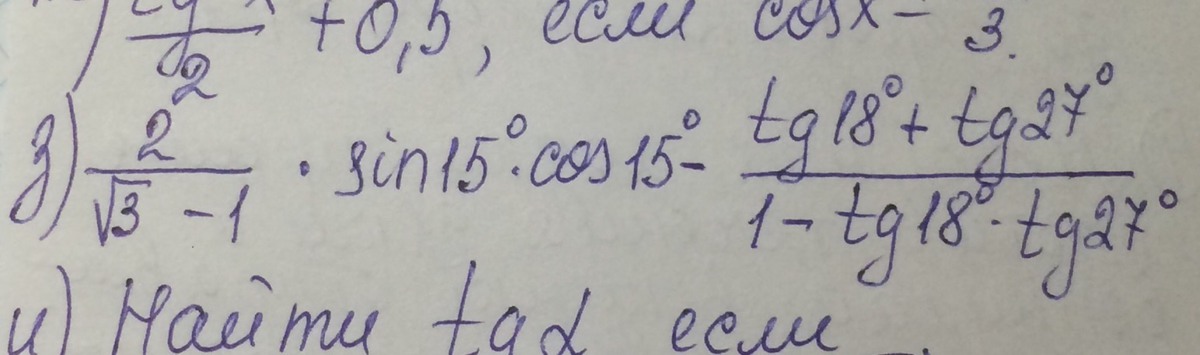 2 + 0,5, если cosx - 3.
з) 2/(√3 - 1) · sin15°·cos15° - (tg18° + tg27°)/(1 - tg18°·tg27°)
и) Найти tgα если